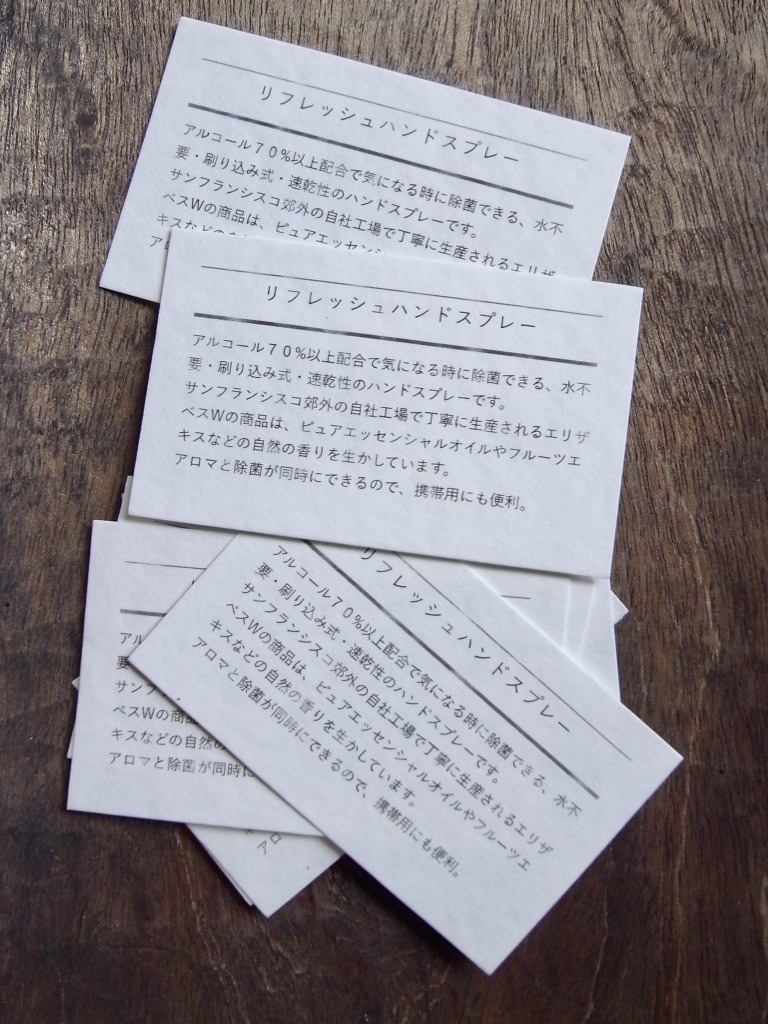 リフレッシュハンドスプレー
アルコール70%以上配合で気になる時に除菌できる、水不
要・刷り込み式・速乾性のハンドスプレーです。
サンフランシスコ郊外の自社工場で丁寧に生産されるエリザ
ベスWの商品は、ピュアエッセンシ
キスなどの
ア
リフレッシュハンドスプレー
アルコール70%以上配合で気になる時に除菌できる、水不
要・刷り込み式・速乾性のハンドスプレーです。
サンフランシスコ郊外の自社工場で丁寧に生産されるエリザ
ベスWの商品は、ピュアエッセンシャルオイルやフルーツエ
キスなどの自然の香りを生かしています。
アロマと除菌が同時にできるので、携帯用にも便利。
リフレッシュハンドスプレー
アルコール70%以上配合で気になる時に除菌できる、水不
要・刷り込み式・速乾性のハンドスプレーです。
サンフランシスコ郊外の自社工場で丁寧に生産されるエリザ
ベスWの商品は、ピュアエッセンシャルオイルやフルーツエ
キスなどの自然の香りを生かしています。
アロマと除菌が同時にできるので、携帯用にも便利。
アル
要
サン
ベスWの商品
キスなどの自然の
アロマと除菌が同時に
アロ